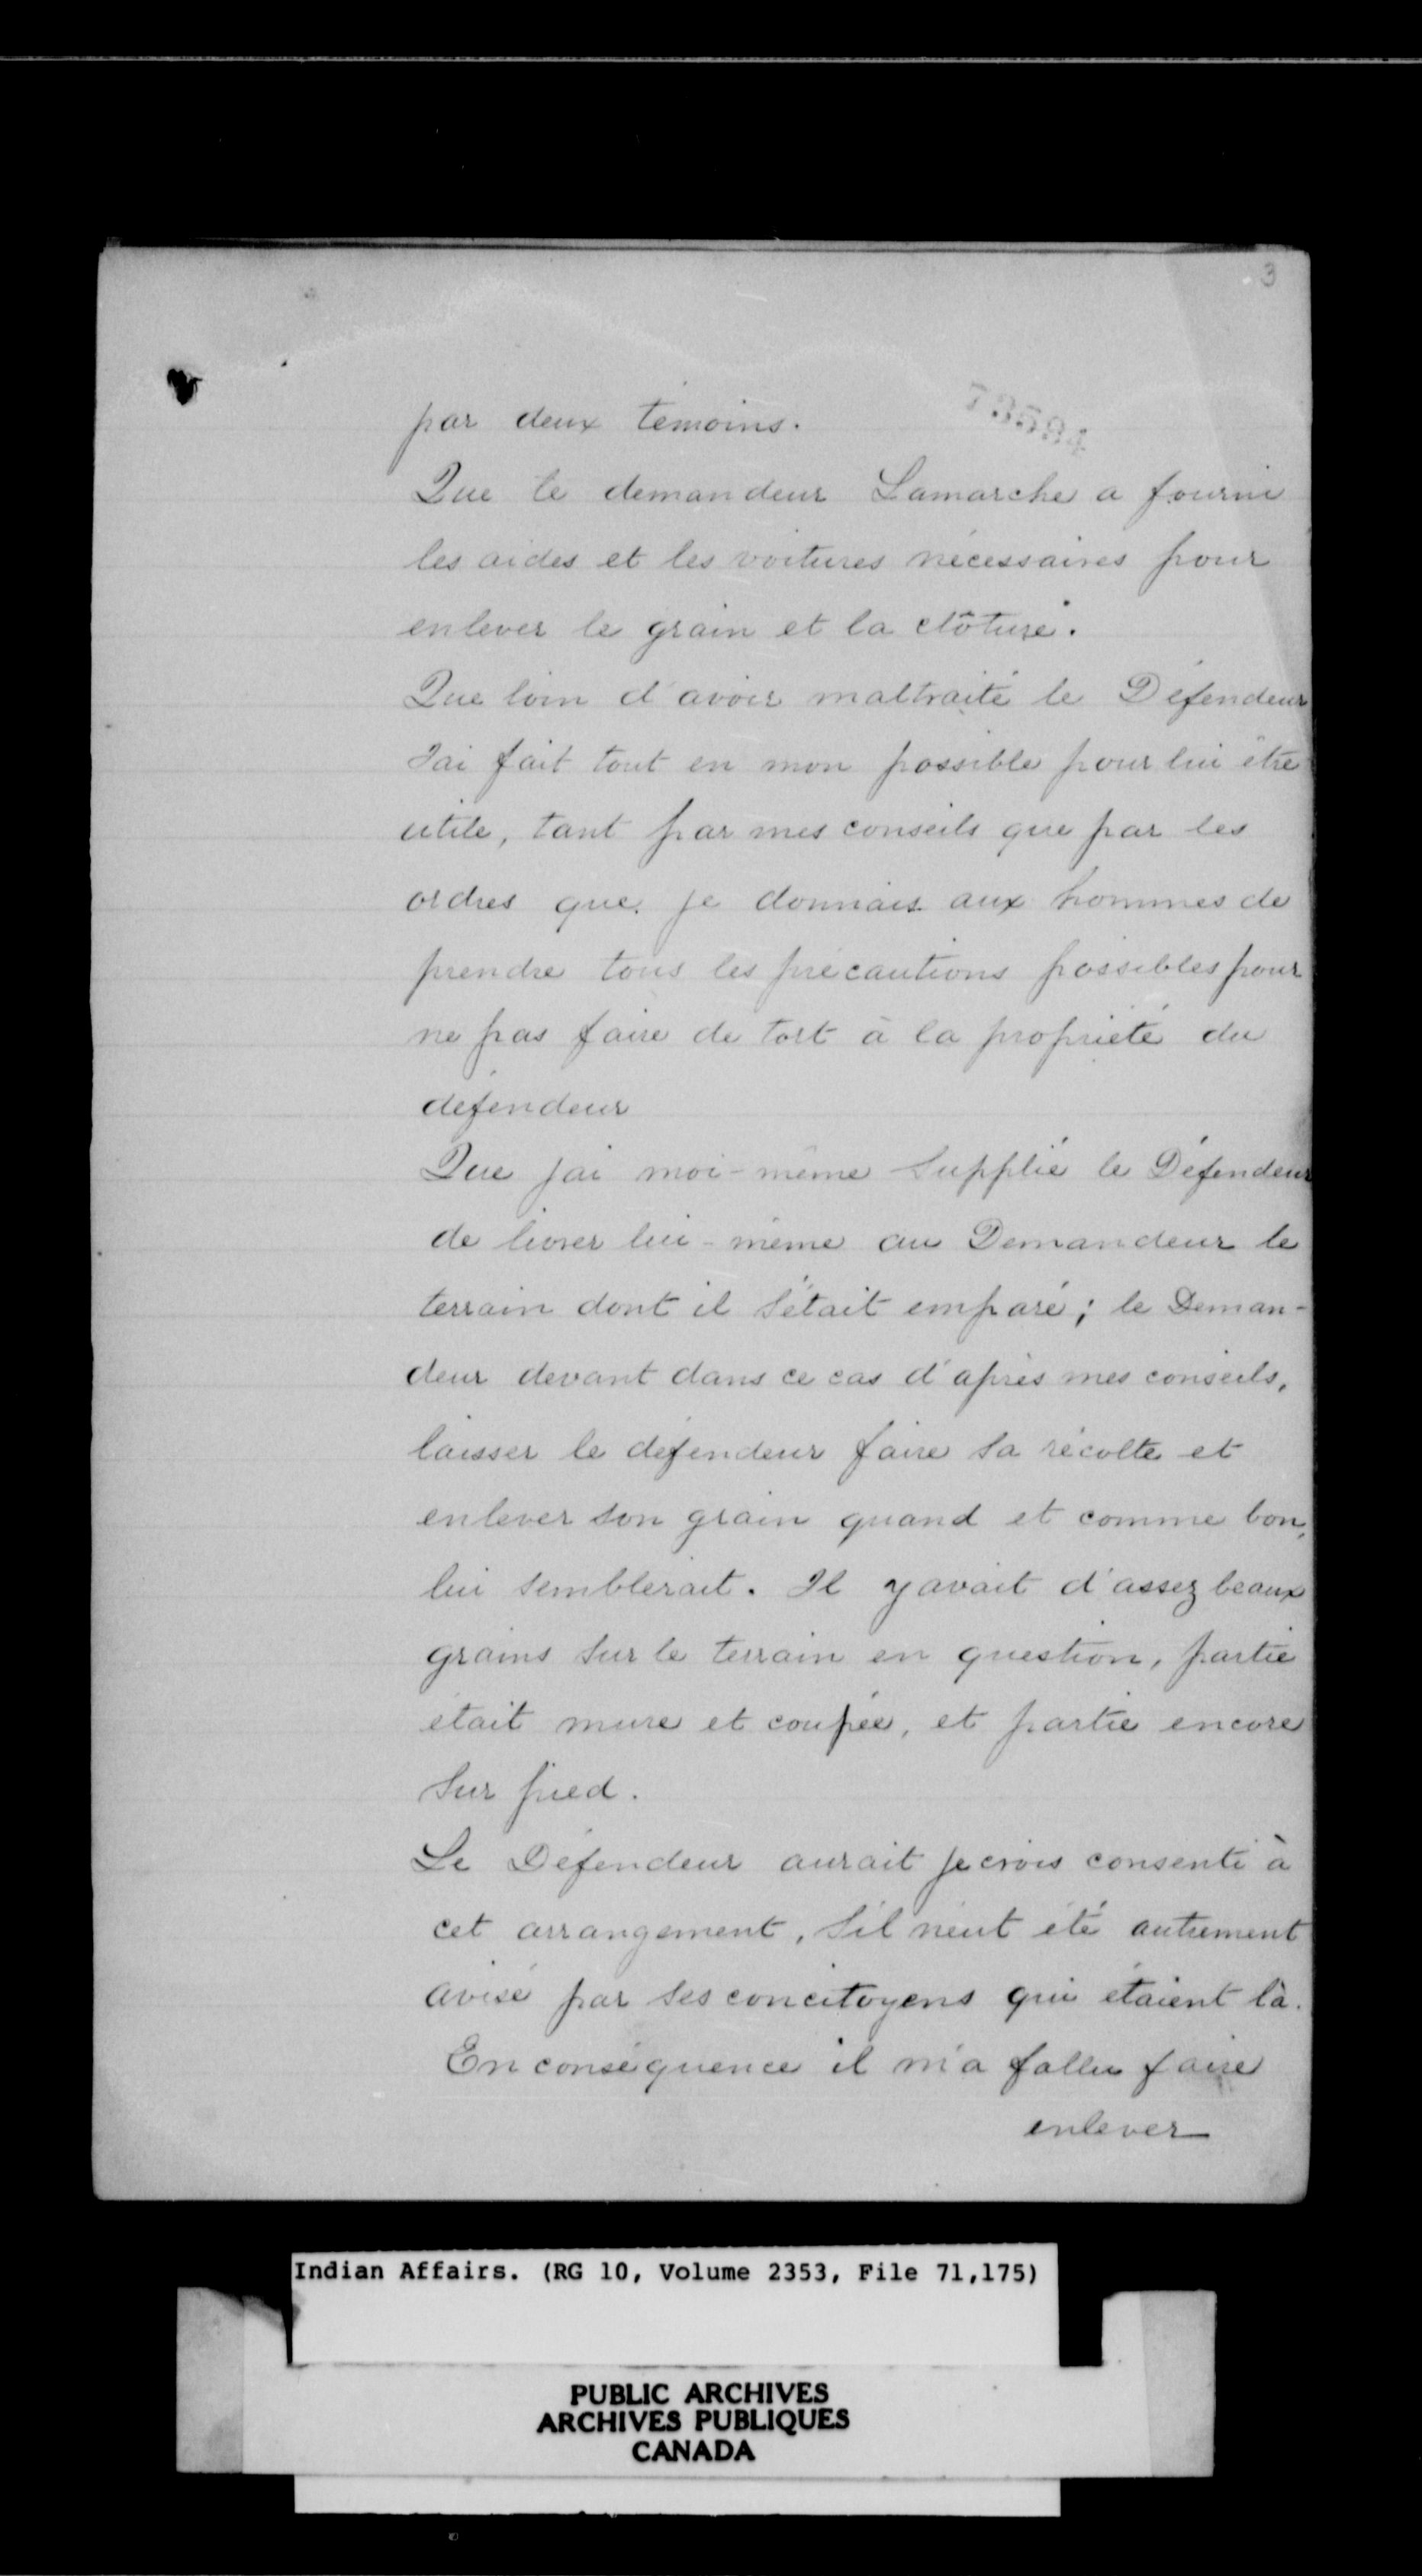 3
par deux témoins.
Que le demandeur Lamarche a fourni
les aides et les voitures nécessaires pour
enlever le grain et la clôture.
Que loin d'avoir maltraité le Défendeur
J'ai fait tout en mon possible pour lui être
utile, tant par mes conseils que par les
ordres que je donnais aux hommes de
prendre tous les précautions possibles pour
ne pas faire de tort à la propriété du
défendeur
Que j'ai moi-même supplié le Défendeur
de livrer lui-même au Demandeur le
terrain dont il s'était emparé; le Deman-
deur devant dans ce cas d'après mes conseils,
laisser le défendeur faire sa récolte et
enlever son grain quand et comme bon,
lui semblerait. Il y avait d'assez beaux
grains sur le terrain en question, partie
était mure et coupée, et partie encore
sur pied.
Le Défendeur aurait je crois consenti à
cet arrangement, s'il n'eut été autrement
avisé par ses concitoyens qui étaient là.
En conséquence il m'a fallu faire
enlever
Indian Affairs. (RG 10, Volume 2353, File 71,175)
PUBLIC ARCHIVES
ARCHIVES PUBLIQUES
CANADA